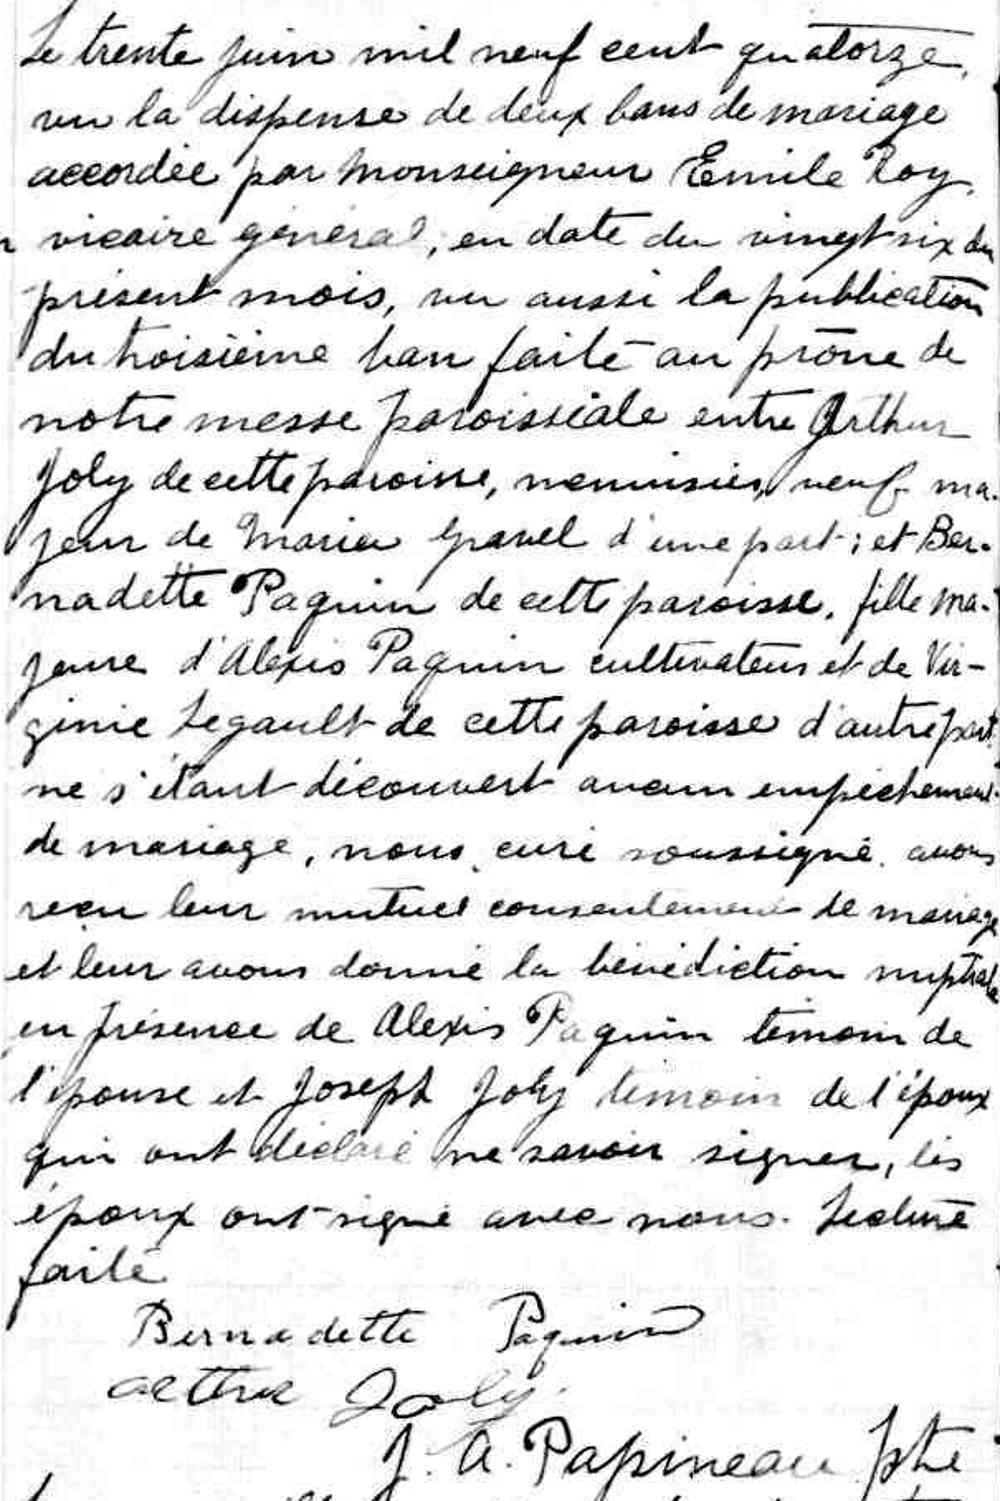 Le trente juin mil neuf cent quatorze,
vu la dispense de deux bans de mariage
accordée par Monseigneur Emile Roy,
vicaire général, en date du vingt six du
présent mois, vu aussi la publication
du troisième ban faite au prône de
notre messe paroissiale entre Arthur
Joly de cette paroisse, menuisier, veuf ma-
jeur de Maria Gravel d'une part; et Ber-
nadette Paquin de cette paroisse, fille ma-
jeure d'Alexis Paquin cultivateur et de Vir-
ginie Legault de cette paroisse d'autre part
ne s'étant découvert aucun empêchement
de mariage, nous, curé soussigné, avons
reçu leur mutuel consentement de mariage
et leur avons donné la bénédiction nuptiale
en présence de Alexis Paquin témoin de
l'épouse et Joseph Joly témoin de l'époux
qui ont déclaré ne savoir signer, les
époux ont signé avec nous. Lecture
faite
Bernadette Paquin
Arthur Joly
J. A. Papineau Ptre